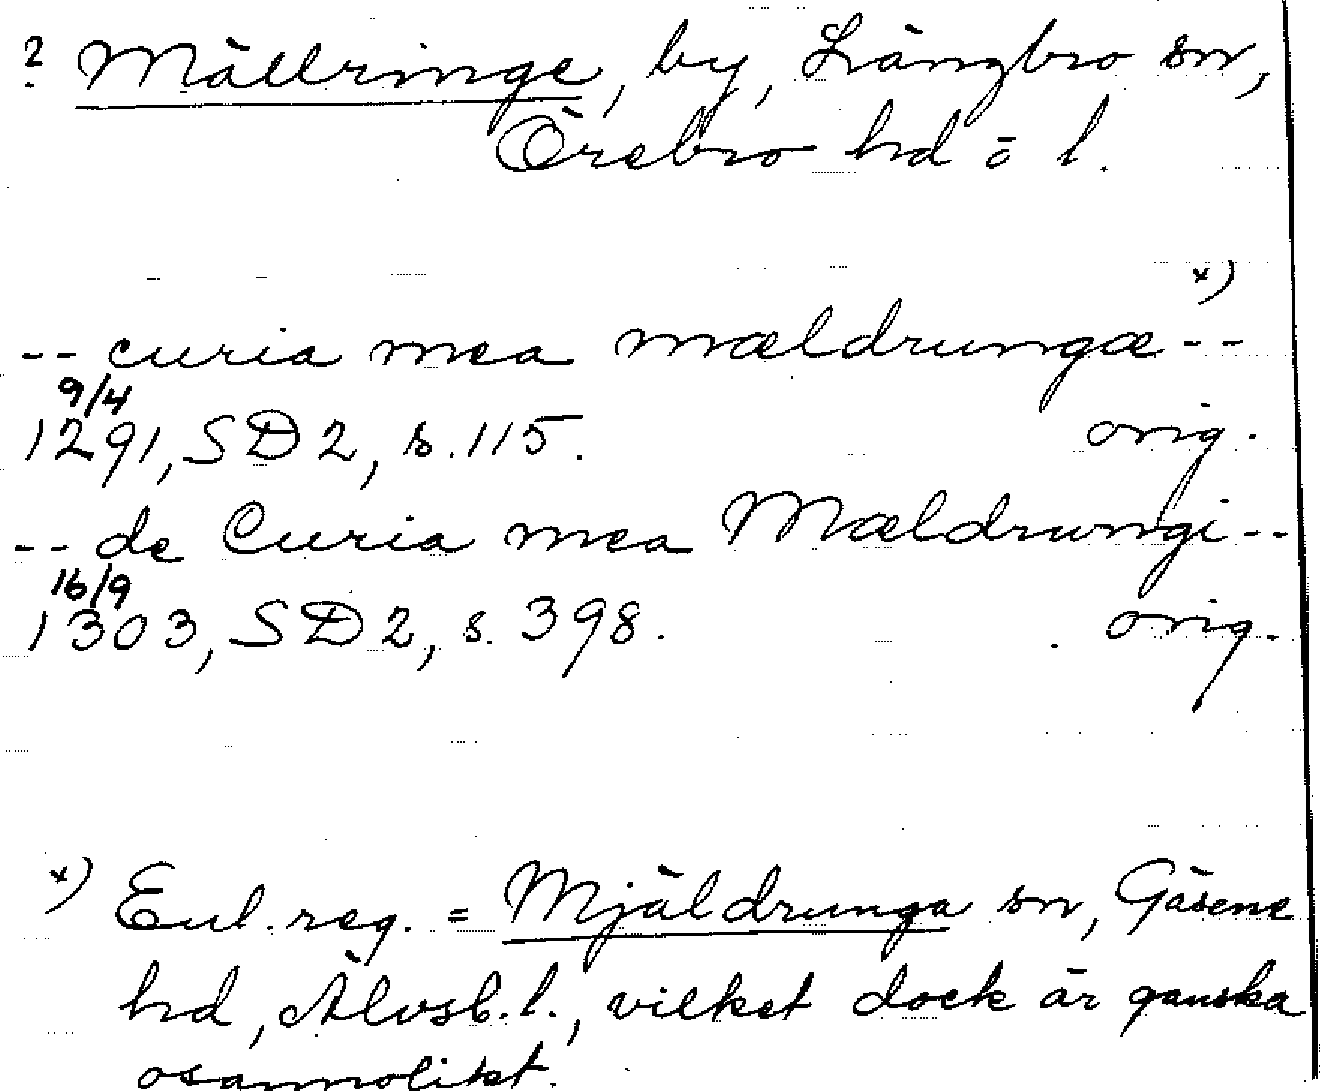 ? Mällringe, by, Längbro sn,
Örebro hd o l.
*)
-- curia mea mældrungæ --
9/4
1291, SD 2, s. 115. orig.
-- de Curia mea Mældrungi --
16/9
1303, SD 2, s. 398. orig.
*) Enl. reg. = Mjäldrunga sn, Gäsene
hd, Älvsb. l., vilket dock är ganska
osannolikt.